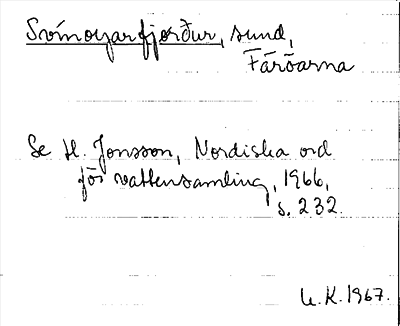 Svínoyarfjørður, sund,
Färöarna
Se H. Jonsson, Nordiska ord
för vattensamling, 1966,
s. 232.
U.K. 1967.